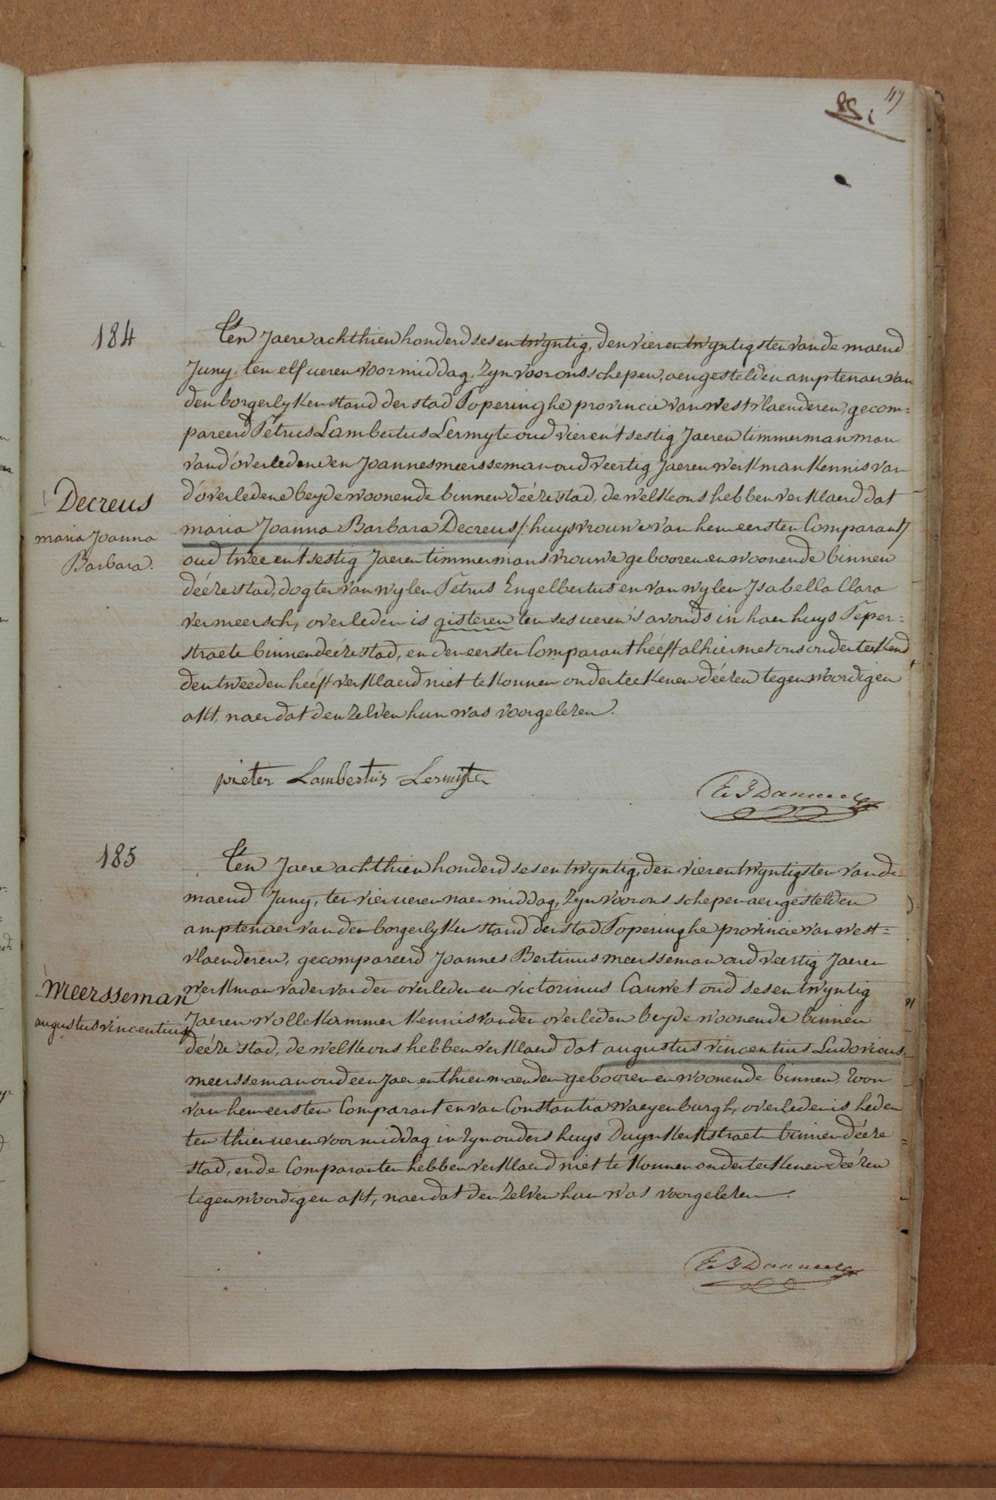 47
85
184
Ten Jaere achthien honderd sesentwyntig, den vierentwyntigsten van de maend
Juny, ten elf ueren voormiddag, Zyn voor ons schepen, aengestelden amptenaer van
den borgerlyken stand der stad Poperinghe provincie van westvlaenderen, gecom=
pareerd Pétrus Lambertus Lermyte oud vierentsestig Jaeren timmerman man
van d'overledene en Joannes meersseman oud veertig Jaeren werkman Kennis van
d'overledene beyde woonende binnen dééze stad, de welke ons hebben verklaerd dat
Decreus
maria Joanna
Barbara.
maria Joanna Barbara Decreus /: huysvrouwe van hem eersten Comparant /
oud twee entsestig Jaeren timmermans vrouwe gebooren en woonende binnen
déeze stad, dogter van wylen Pétrus Engelbertus en van wylen Isabella Clara
vermeersch, overleden is gisteren ten ses ueren 's avonds in haer huys Peper=
straete binnen deéze stad, en den eersten Comparant hééft alhier met ons onderteekend
den tweeden heeft verklaerd niet te konnen onderteekenen déézen tegenwoordigen
akt, naer dat den zelven hun was voorgelezen.
pieter Lambertus Lermyte
185
Ten Jaere achthien honderd sesentwyntig, den vierentwyntigsten van de
maend Juny, ten vier ueren naermiddag, Zyn voor ons schepen aengestelden
amptenaer van den borgerlyken stand der stad Poperinghe provincie van west=
vlaenderen, gecompareerd Joannes Bertinus meersseman oud veertig Jaeren
Meersseman
augustus vincentius
werkman vader van den overleden en victorinus Cauwet oud sesentwyntig
Jaeren wollekammer Kennis van den overleden beyde woonende binnen
déeze stad, de welke ons hebben verklaerd dat augustus vincentius Ludovicus
meersseman oud een Jaer en thien maenden gebooren en woonende binnen Zoon
van hem eersten Comparant en van Constantia waeyenburgh, overleden is heden
ten thien ueren voormiddag in Zyn ouders huys Duynkerkstraete binnen déeze
stad, en de Comparanten hebben verklaerd niet te konnen onderteekenen déézen
tegenwoordigen akt, naer dat den zelven hun was voorgelezen.